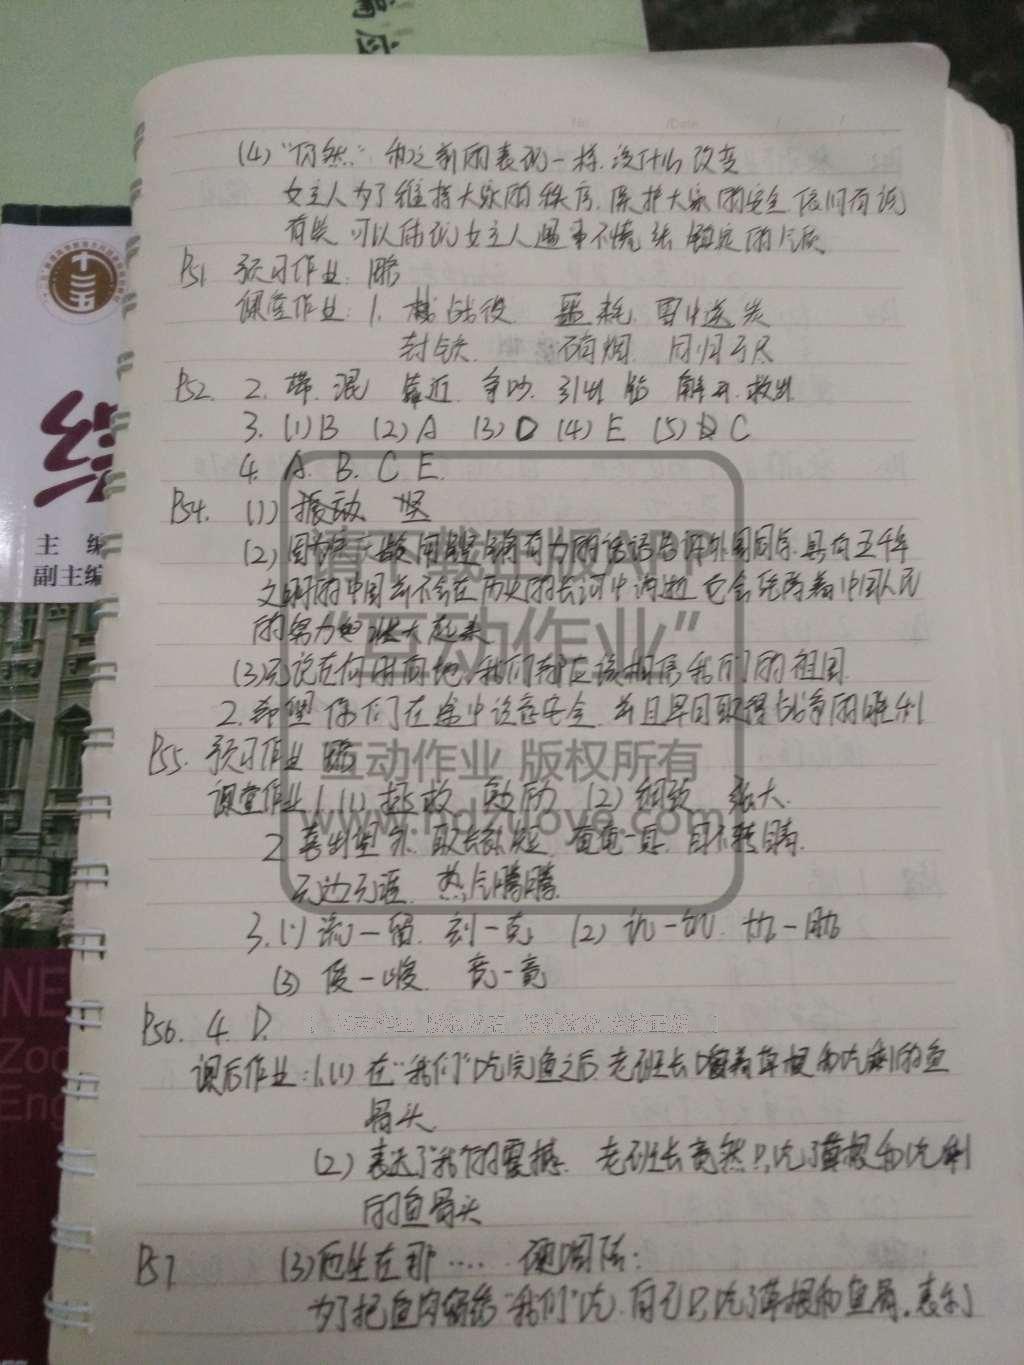 (4) "仍然" 和之前的表现一样,没什么改变
女主人为了维持大家的秩序,保护大家的安全,依旧有说
有笑 可以体现女主人遇事不慌张 镇定的气质
P51 预习作业: 略
课堂作业: 1. 战役 噩耗 雪中送炭
封锁. 硝烟. 同归于尽
P52. 2. 带 混 靠近 争吵 引出 船 解开 救出
3. (1) B (2) A (3) D (4) E (5) C
4. A. B. C E.
P54. (1) 振动 坚
(2) 有力的话语告诉外国同学,具有五千年
文明的中国并不会在历史的长河中消逝 它会随着中国人民
的努力 壮大起来
(3) 无论在何时何地,我们都应该相信我们的祖国.
2. 希望你们在途中注意安全 并且早日取得战争的胜利
P55. 预习作业 略
课堂作业 1. (1) 拯救 励 (2) 细致 张大.
2 喜出望外. 取长补短. 奄奄一息. 目不转睛.
无边无涯. 热气腾腾.
3. (1) 流一留. 刻一克 (2) 协一助
(3) 俊一峻. 竞一竟
P56. 4. D.
课后作业: 1. (1) 在"我们"吃完鱼之后,老班长嚼着草根和吃剩的鱼
骨头.
(2) 表达了"我"的震撼. 老班长竟然只吃了草根和吃剩
的鱼骨头
P57 (3) 他坐在那 ····· 硬咽随:
为了把鱼肉留给"我们"吃,自己只吃了草根和鱼骨,表示了
十二五
主 编
副主编
NE
Zoo
Eng
请下载正版APP
"互动作业"
互动作业 版权所有
www.hdzuoye.com